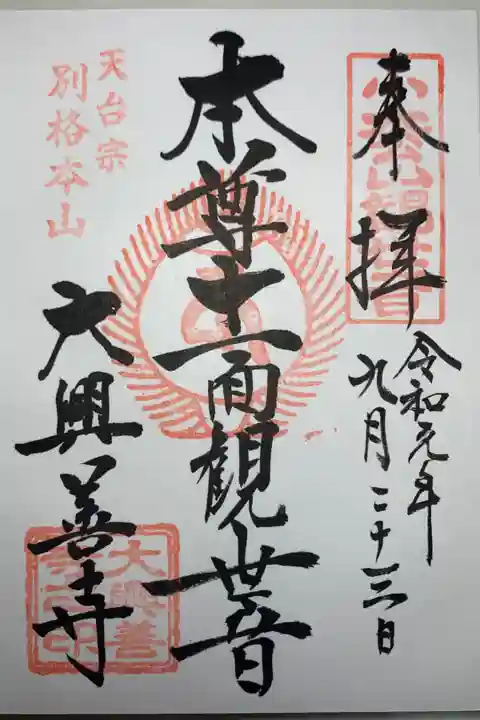 奉拝
令和元年
九月二十三日
本尊十一面観世音
天台宗
別格本山
大興善寺